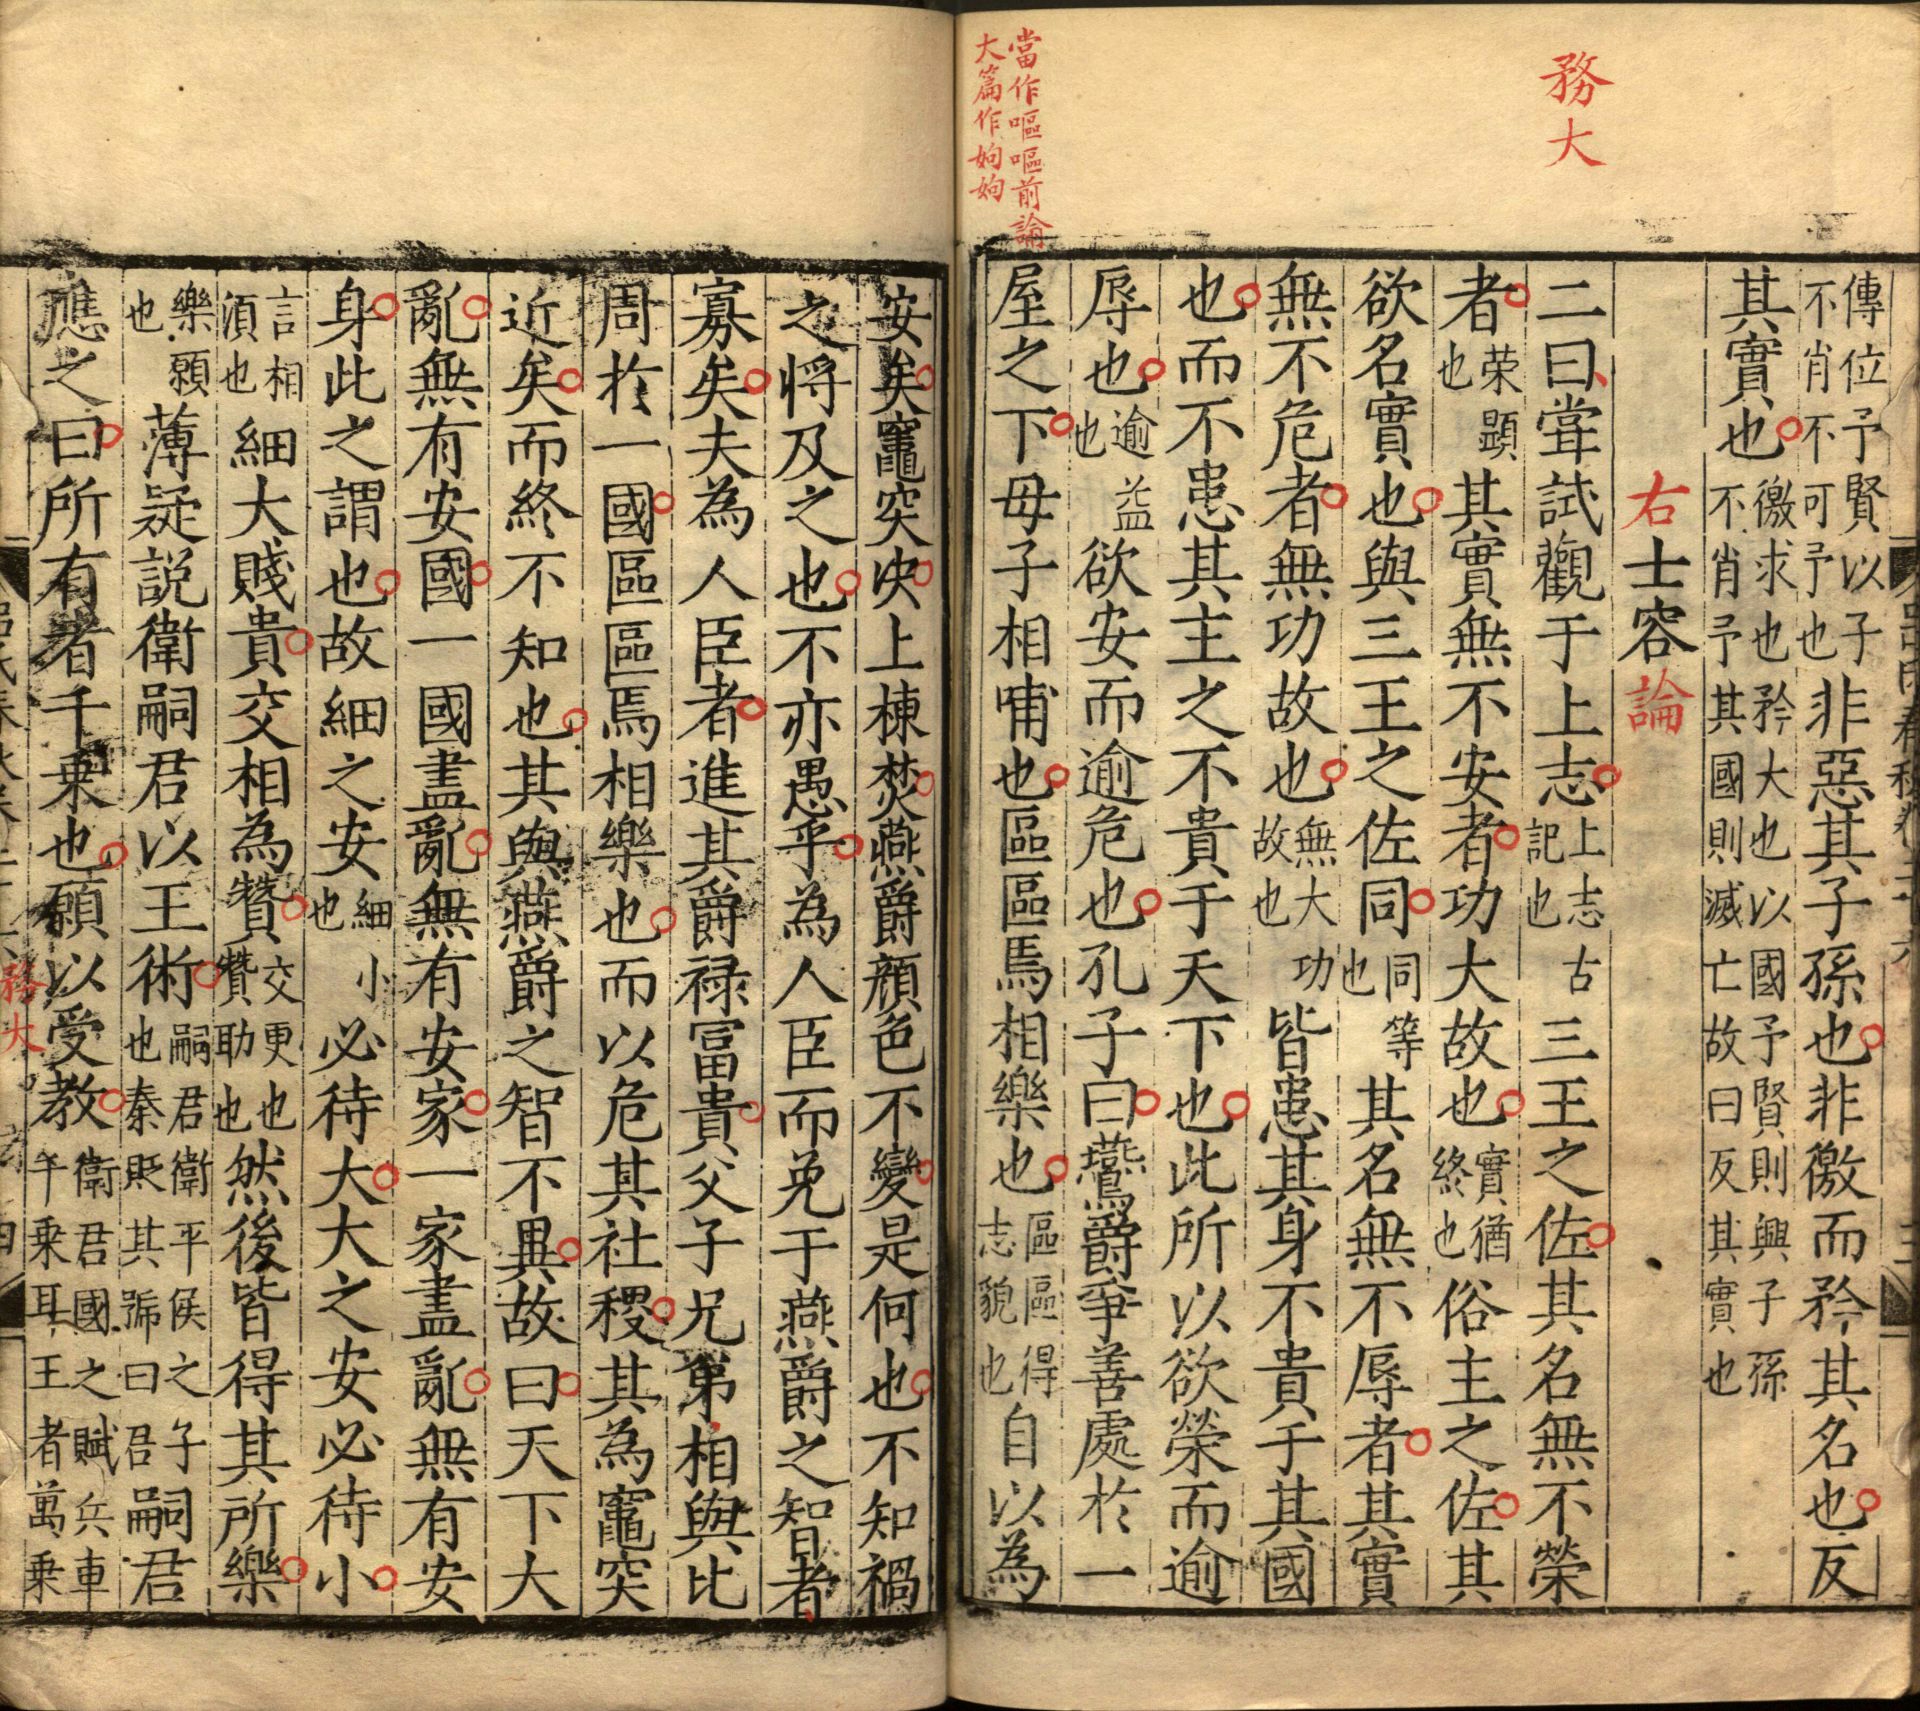 務大
當作嘔嘔前論
大篇作姁姁
傳位予賢以子不肖不可予也非惡其子孫也非徼而矜其名也反
其實也徼求也矜大也以國予賢則興子孫不肖予其國則滅亡故曰反其實也
右士容論
二曰甞試觀于上志上志古記也三王之佐其名無不榮
者荣顯也其實無不安者功大故也實猶終也俗主之佐其
欲名實也與三王之佐同同等也其名無不辱者其實
無不危者無功故也無大功故也皆患其身不貴于其國
也而不患其主之不貴于天下也此所以欲榮而逾
辱也逾益也欲安而逾危也孔子曰鷰爵爭善處於一
屋之下母子相哺也區區焉相樂也區區得志貌也自以為
安矣竈突決上棟焚燕爵顔色不變是何也不知禍
之将及之也不亦愚乎為人臣而免于燕爵之智者
寡矣夫為人臣者進其爵禄冨貴父子兄弟相與比
周扵一國區區焉相樂也而以危其社稷其為竈突
近矣而終不知也其與燕爵之智不異故曰天下大
亂無有安國一國盡亂無有安家一家盡亂無有安
身此之謂也故細之安細小也必待大大之安必待小
言相須也細大賤貴交相為贊交更也贊助也然後皆得其所樂
樂願也薄疑説衛嗣君以王術嗣君衛平侯之子也秦貶其號曰君嗣君
應之曰所有者千乘也願以受教衛君國之賦兵車千乘耳王者萬乘
務大